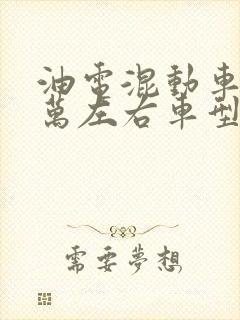 油電混動車
萬左右車型
需要夢想